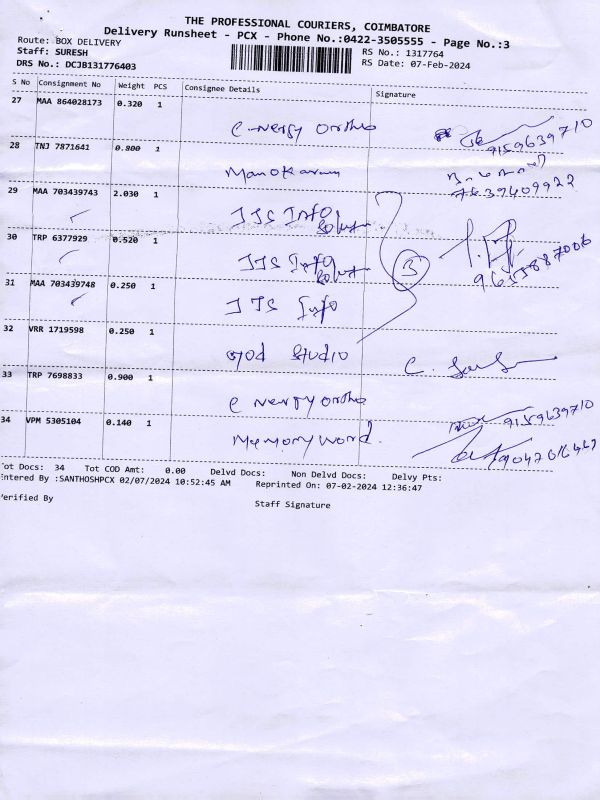 THE PROFESSIONAL COURIERS, COIMBATORE
Delivery Runsheet - PCX - Phone No.:0422-3505555 - Page No.:3
Route: BOX DELIVERY
Staff: SURESH
RS No.: 1317764
DRS No.: DCJB131776403
RS Date: 07-Feb-2024
S No Consignment No Weight PCS Consignee Details Signature
27 MAA 864028173 0.320 1
e nergy ortho 9159639710
28 TNJ 7871641 0.800 1
Manokaran 7639409922
29 MAA 703439743 2.030 1
JJS Info
30 TRP 6377929 0.520 1
JJS Info 3
31 MAA 703439748 0.250 1
JJS Info
32 VRR 1719598 0.250 1
studio
33 TRP 7698833 0.900 1
e nergy ortho 9159639710
34 VPM 5305104 0.140 1
Memory word.
ot Docs: 34 Tot COD Amt: 0.00 Delvd Docs: Non Delvd Docs: Delvy Pts:
ntered By :SANTHOSHPCX 02/07/2024 10:52:45 AM Reprinted On: 07-02-2024 12:36:47
erified By Staff Signature